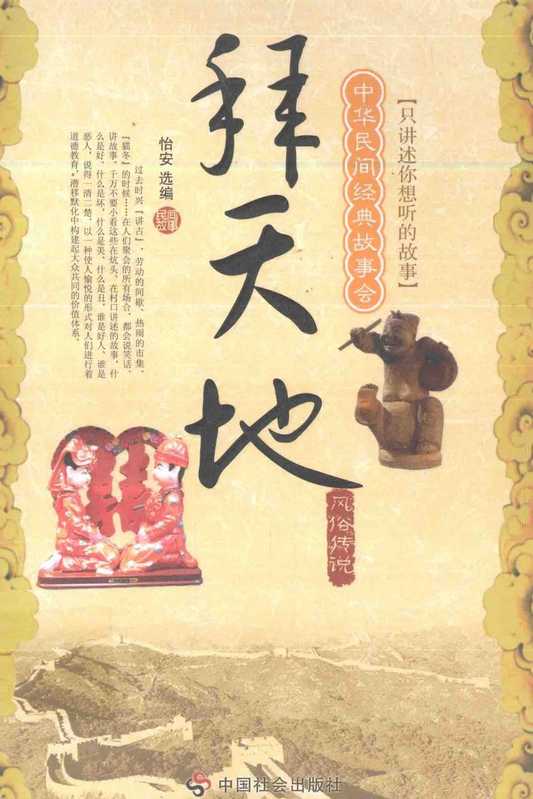 【只讲述你想听的故事】
中华民间经典故事会
拜天地
风俗传说
怡安 选编
过去时兴『讲古』，劳动的间歇、热闹的市集、
『猫冬』的时候……在人们聚会的所有场合，都会说笑话、
讲故事。千万不要小看这些在炕头、在村口讲述的故事，什
么是好、什么是坏，什么是美、什么是丑，谁是好人、谁是
恶人，说得一清二楚，以一种使人愉悦的形式对人们进行着
道德教育，潜移默化中构建起大众共同的价值体系。
中国社会出版社